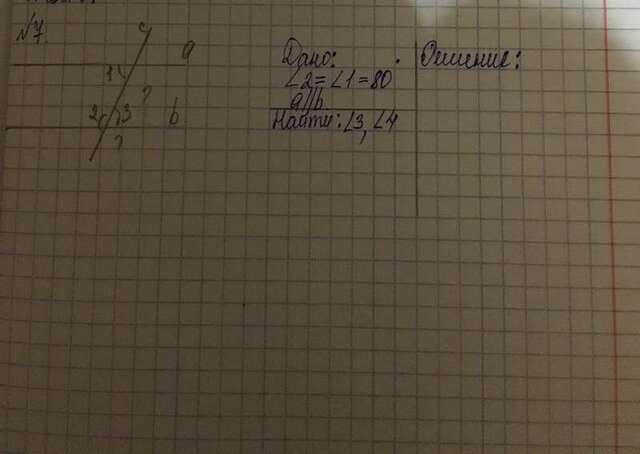 c
a
1
?
2 3 b
?
Дано:
∠2=∠1=80
a||b
Найти: ∠3, ∠4
Решение: